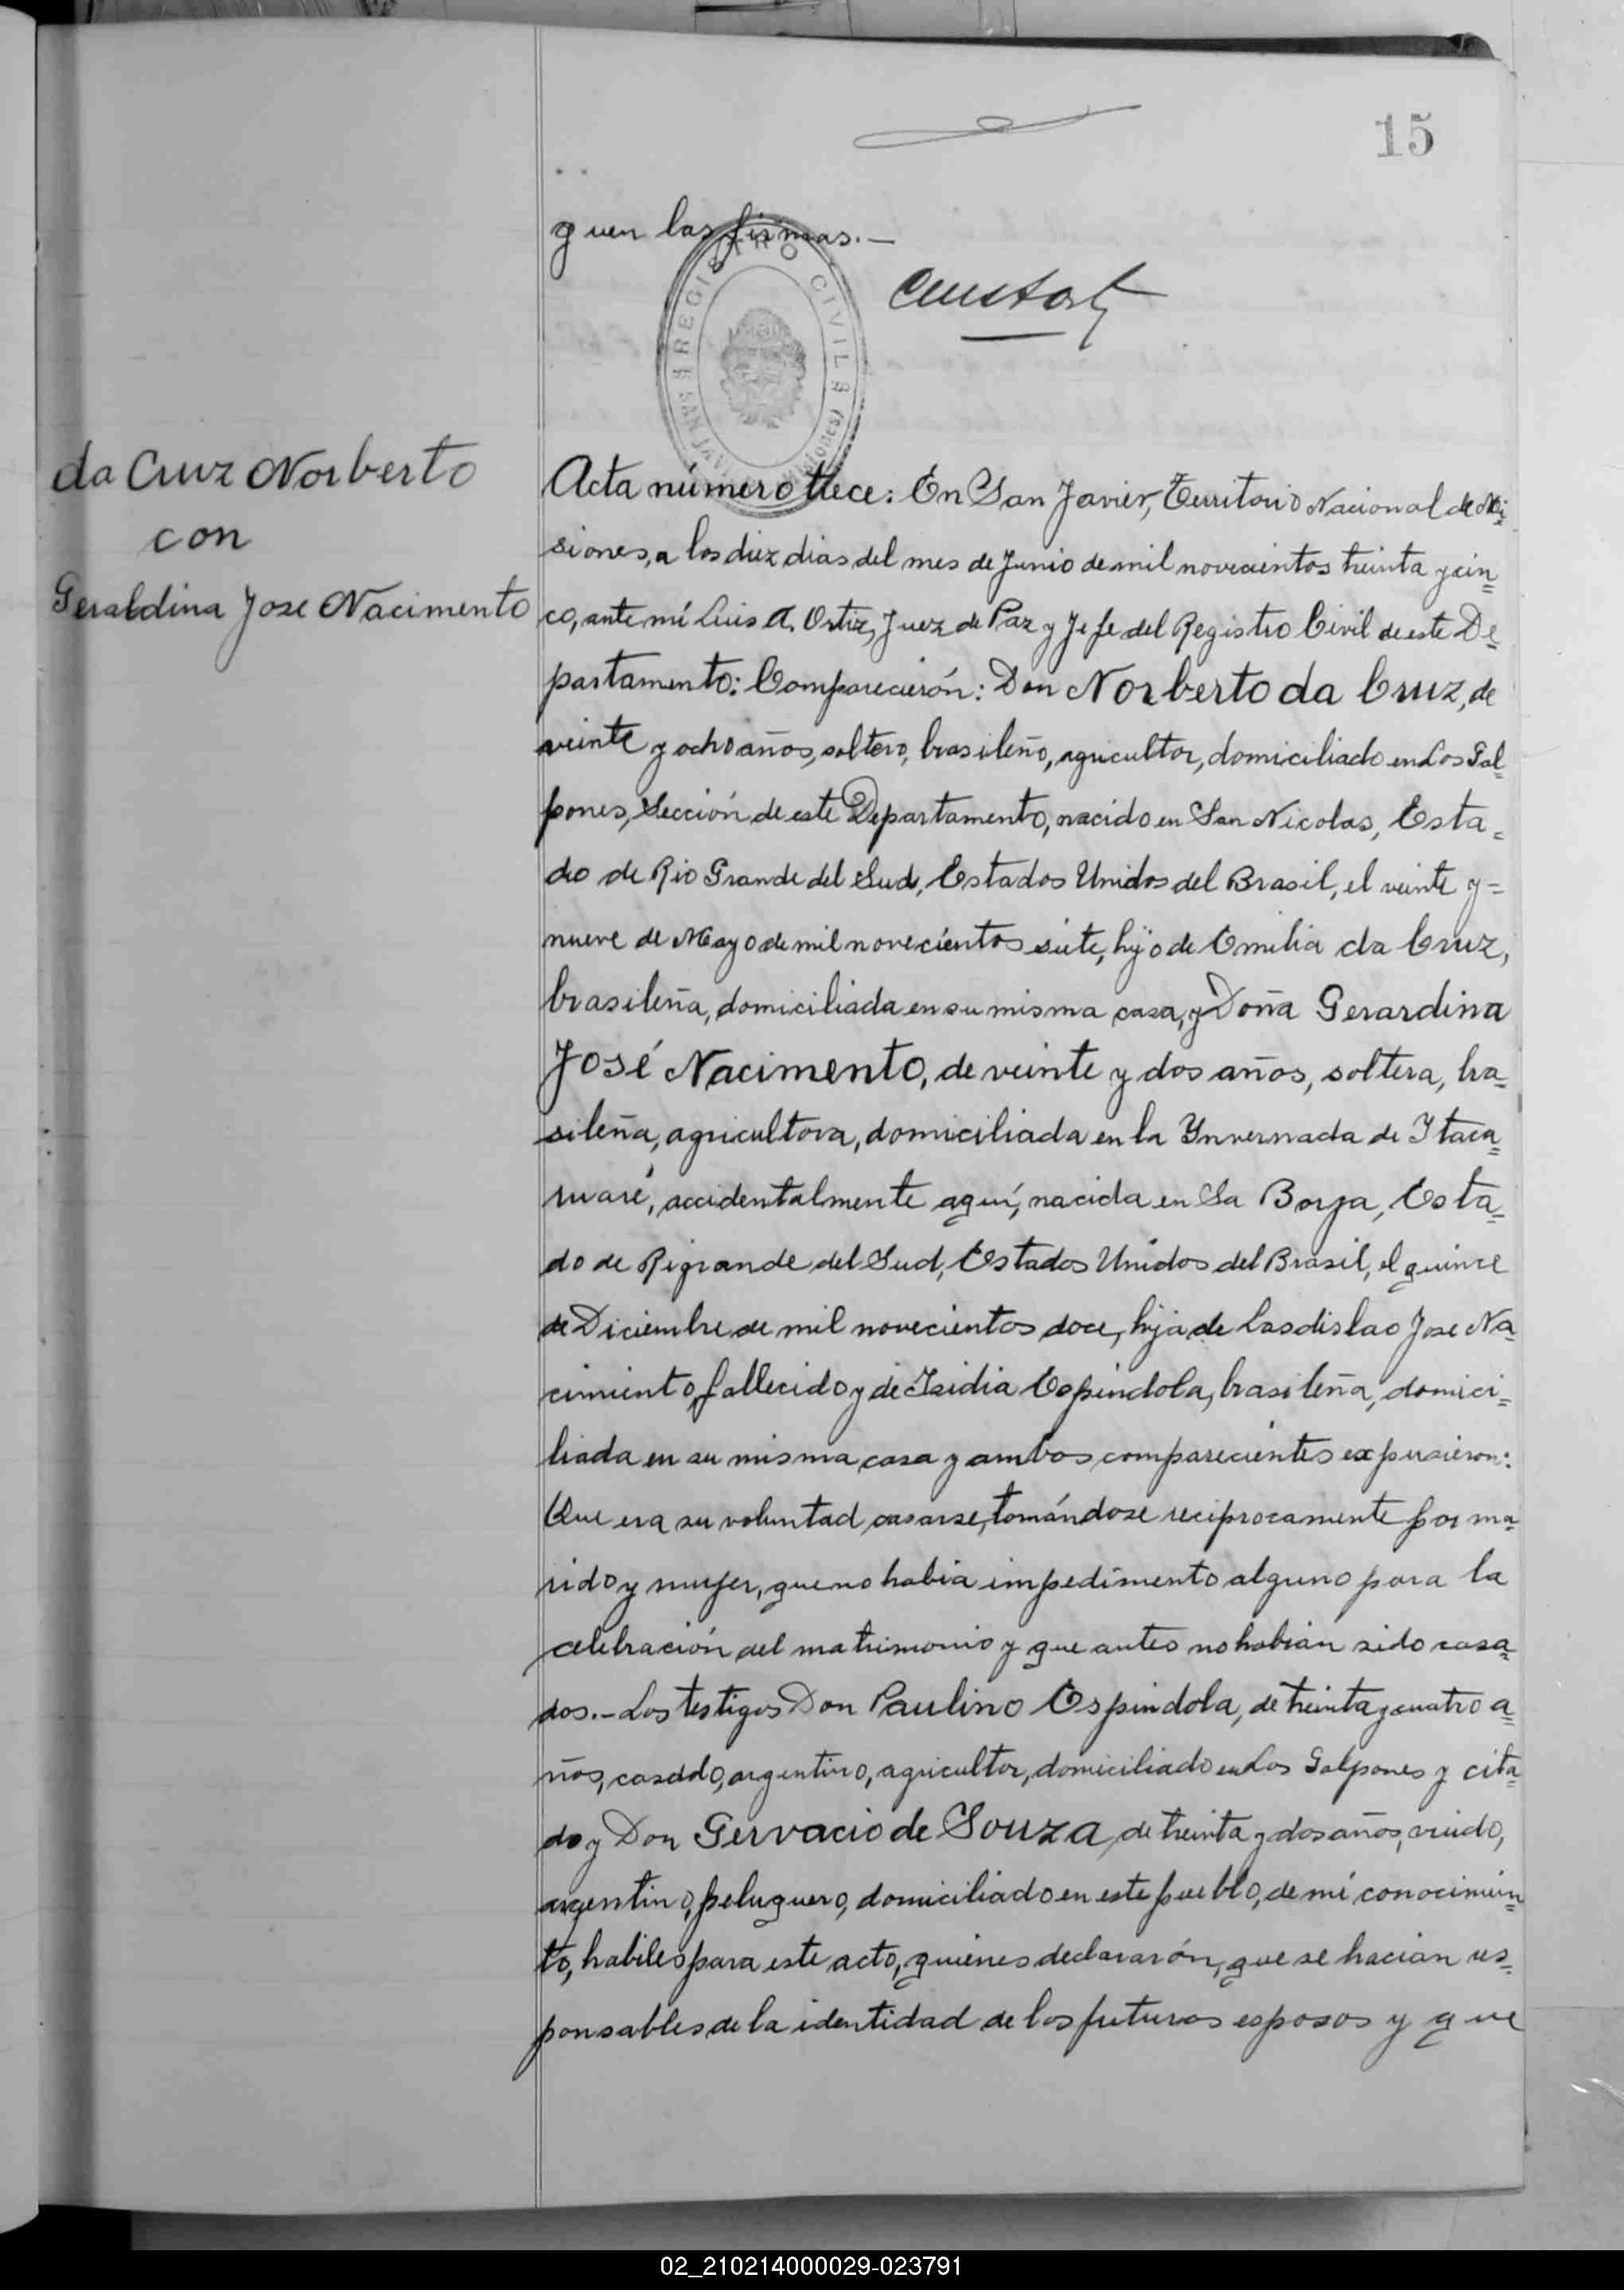 15
guen las firmas.—
REGISTRO CIVIL
SAN JAVIER (Misiones)
da Cruz Norberto
con
Geraldina Jose Nacimento
Acta número trece: En San Javier, Territorio Nacional de Mi=
siones, a los diez dias del mes de Junio de mil novecientos treinta y cin=
co, ante mí Luis A. Ortiz, Juez de Paz y Jefe del Registro Civil de este De=
partamento: Comparecierón: Don Norberto da Cruz, de
veinte y ocho años, soltero, brasileño, agricultor, domiciliado en Los Gal=
pones, Sección de este Departamento, nacido en San Nicolas, Esta=
do de Rio Grande del Sud, Estados Unidos del Brasil, el veinte y=
nueve de Mayo de mil novecientos siete, hijo de Emilia da Cruz,
brasileña, domiciliada en su misma casa, y Doña Gerardina
José Nacimento, de veinte y dos años, soltera, bra=
sileña, agricultora, domiciliada en la Ynvernada de Itaca=
ruaré, accidentalmente aquí, nacida en Sa Borja, Esta=
do de Rigrande del Sud, Estados Unidos del Brasil, el quince
de Diciembre de mil novecientos doce, hija de Lasdislao Jose Na=
cimiento, fallecido y de Isidia Espindola, brasileña, domici=
liada en su misma casa y ambos comparecientes expusieron:
Que era su voluntad casarse, tomándose reciprocamente por ma=
rido y mujer, que no habia impedimento alguno para la
celebración del matrimonio y que antes no habian sido casa=
dos.—Los testigos Don Paulino Espindola, de treinta y cuatro a=
ños, casado, argentino, agricultor, domiciliado en Los Galpones y cita=
do y Don Gervacio de Souza, de treinta y dos años, viudo,
argentino, peluquero, domiciliado en este pueblo, de mi conocimien=
to, habiles para este acto, quienes declararón, que se hacian res=
ponsables de la identidad de los futuros esposos y que
02_210214000029-023791